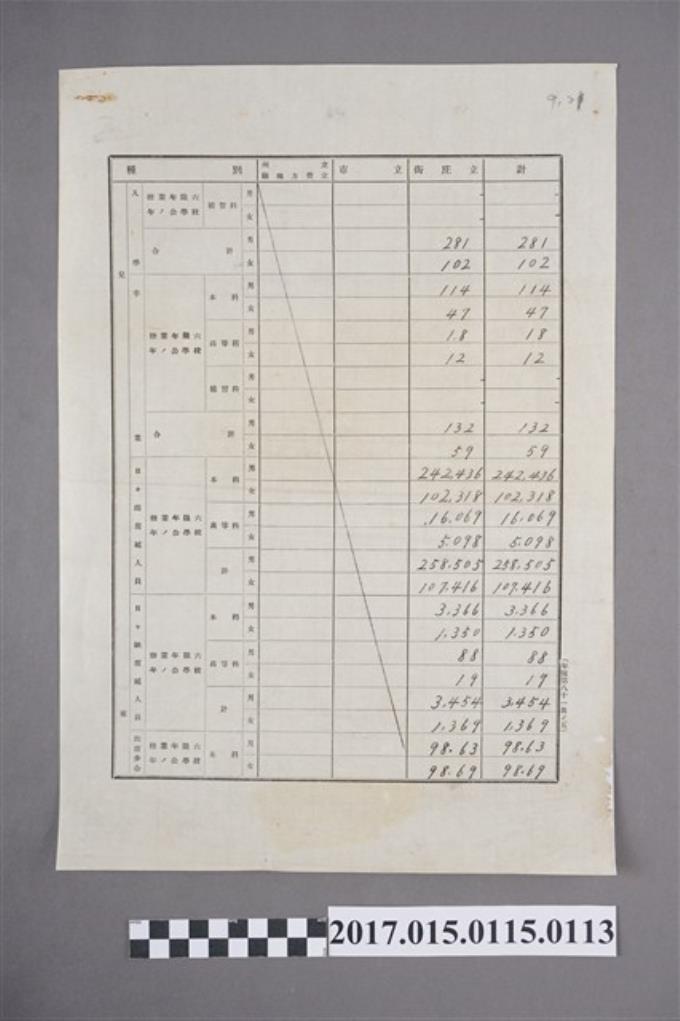 9.21
種別 州立 市立 街庄立 計
入學 修業年限六年ノ公學校 補習科 男 - -
女 - -
合計 男 281 281
女 102 102
兒
卒業 修業年限六年ノ公學校 本科 男 114 114
女 47 47
高等科 男 18 18
女 12 12
補習科 男 - -
女 - -
合計 男 132 132
女 59 59
日々出席延人員 修業年限六年ノ公學校 本科 男 242,436 242,436
女 102,318 102,318
高等科 男 16,069 16,069
女 5,098 5,098
計 男 258,505 258,505
女 107,416 107,416
日々缺席延人員 修業年限六年ノ公學校 本科 男 3,366 3,366
女 1,350 1,350
高等科 男 88 88
女 19 19
計 男 3,454 3,454
女 1,369 1,369
童
出席步合 修業年限六年ノ公學校 本科 男 98.63 98.63
女 98.69 98.69
2017.015.0115.0113